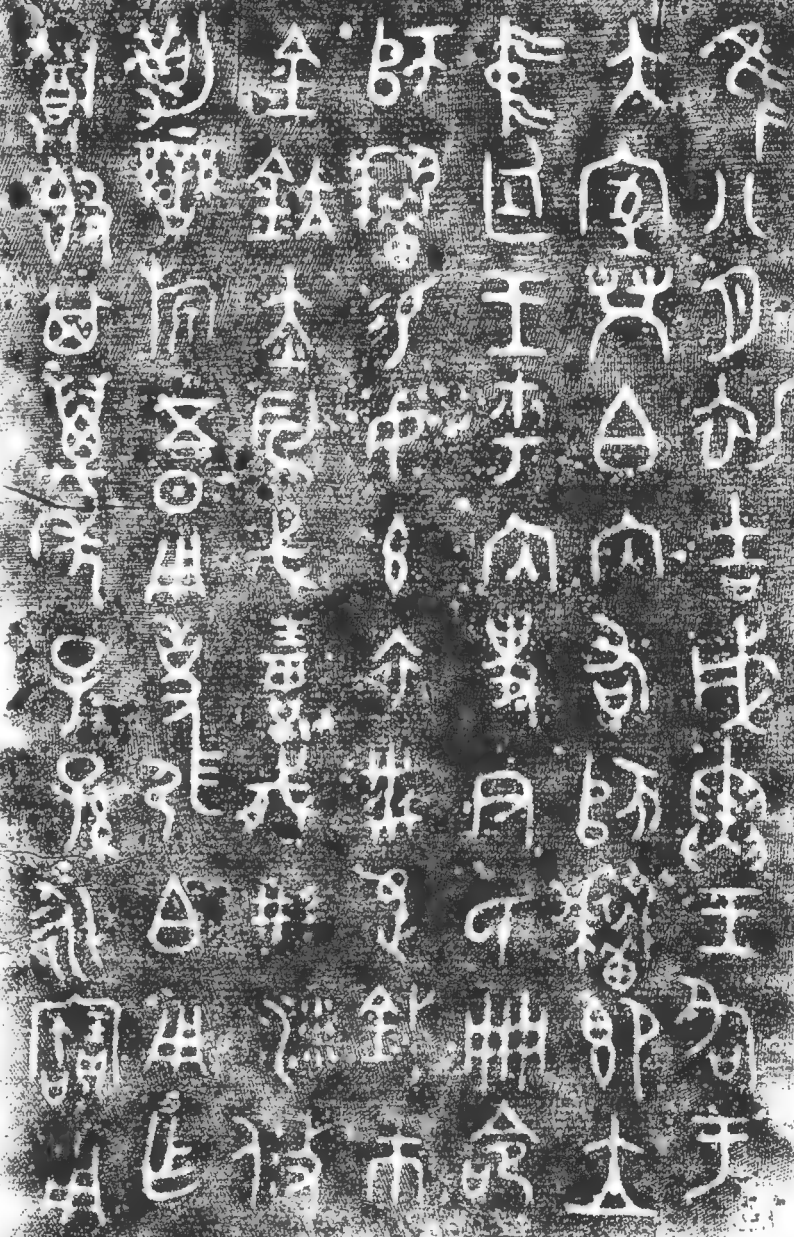 隹八月初吉戊寅王各于
大室榮白內右師耤即立
中廷王乎內史尹氏冊命
師耤易女玄衣黹屯市
金鈧赤舄戈琱㦰彤沙攸
勒鑾旂五日用事弭白用乍
尊𣪘其萬年子孫永寶用